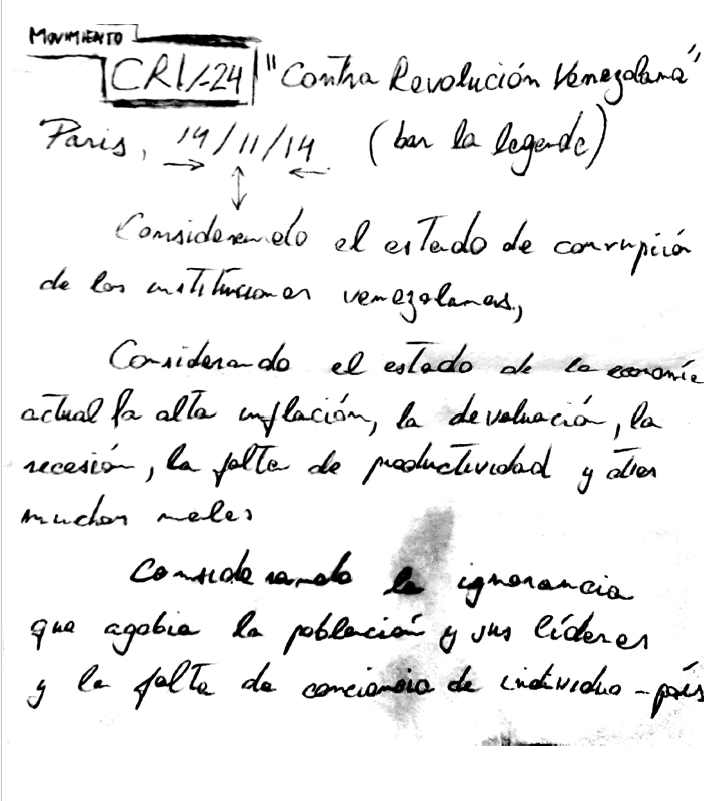 MOVIMIENTO
CRV-24 "Contra Revolución Venezolana"
Paris, 14/11/14 (bar la legende)
Considerando el estado de corrupción
de las instituciones venezolanas,
Considerando el estado de la economía
actual la alta inflación, la devaluación, la
recesión, la falta de productividad y otros
muchos males
Considerando la ignorancia
que agobia la población y sus líderes
y la falta de conciencia de individuo-país